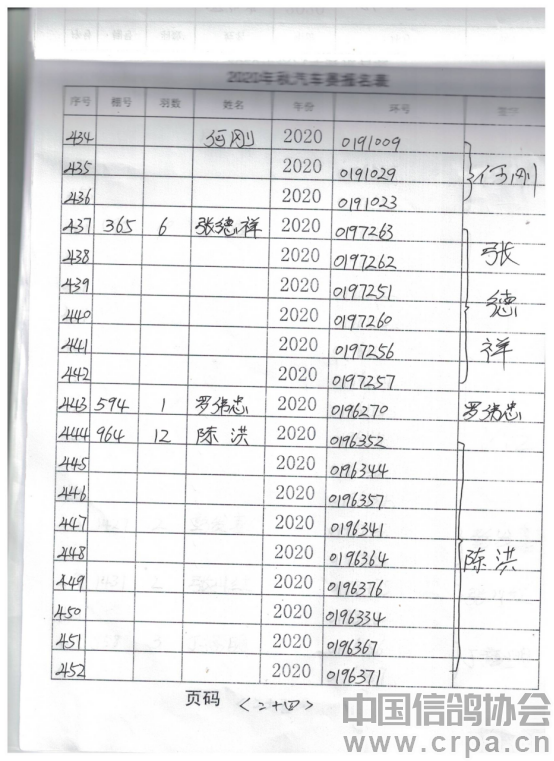 2020年秋汽车赛报名表
序号 棚号 羽数 姓名 年份 环号
434 何刚 2020 0191009
435 2020 0191029 何刚
436 2020 0191023
437 365 6 张德祥 2020 0197263
438 2020 0197262 张
439 2020 0197251
440 2020 0197260 德
441 2020 0197256 祥
442 2020 0197257
443 594 1 罗伟忠 2020 0196270 罗伟忠
444 964 12 陈洪 2020 0196352
445 2020 0196344
446 2020 0196357
447 2020 0196341
448 2020 0196364 陈洪
449 2020 0196376
450 2020 0196334
451 2020 0196367
452 2020 0196371
页码 <二十四>
中国信鸽协会
www.crpa.cn